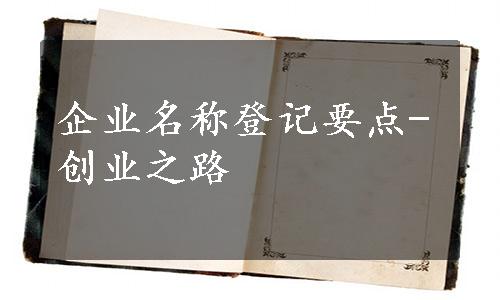 企业名称登记要点-
创业之路